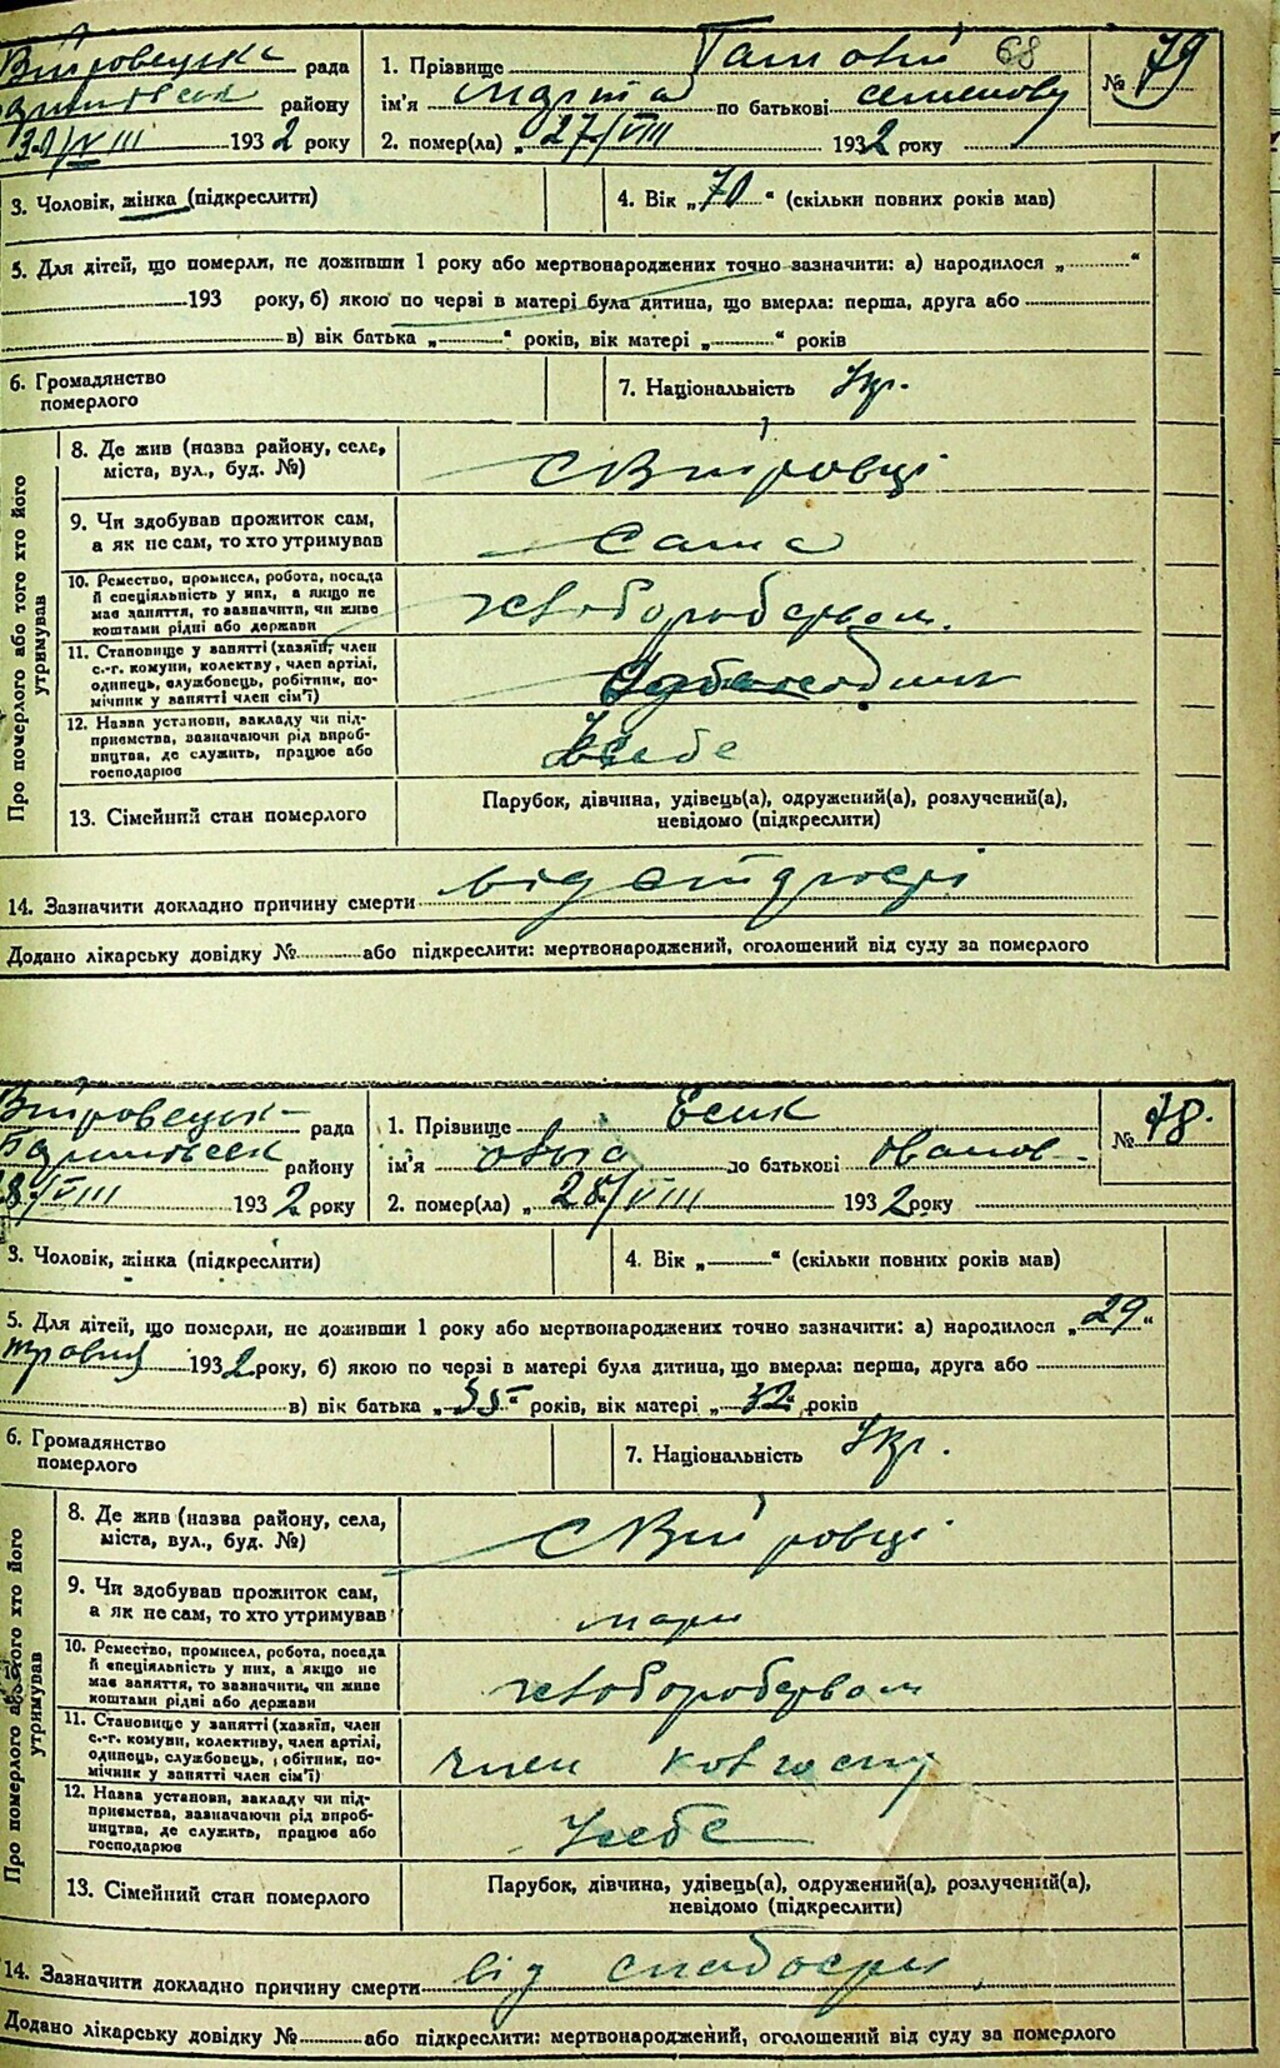 рада 1. Прізвище 68 № 79
району ім'я по батькові
193 2 року 2. помер(ла) „ 27/VIII 193 2 року
3. Чоловік, жінка (підкреслити) 4. Вік „ 70 “ (скільки повних років мав)
5. Для дітей, що померли, не доживши 1 року або мертвонароджених точно зазначити: а) народилося „ “
193 року, б) якою по черзі в матері була дитина, що вмерла: перша, друга або
в) вік батька „ “ років, вік матері „ “ років
6. Громадянство
померлого
7. Національність Укр.
Про померлого або того хто його
утримував
8. Де жив (назва району, села,
міста, вул., буд. №)
9. Чи здобував прожиток сам,
а як не сам, то хто утримував
сама
10. Ремество, промисел, робота, посада
й спеціяльність у них, а якщо не
має заняття, то зазначити, чи живе
коштами рідні або держави
11. Становище у занятті (хазяїн, член
с.-г. комуни, колективу, член артілі,
одинець, службовець, робітник, по-
мічник у занятті член сім'ї)
12. Назва установи, закладу чи під-
приємства, зазначаючи рід вироб-
ництва, де служить, працює або
господарює
13. Сімейний стан померлого
Парубок, дівчина, удівець(а), одружений(а), розлучений(а),
невідомо (підкреслити)
14. Зазначити докладно причину смерти від старості
Додано лікарську довідку № або підкреслити: мертвонароджений, оголошений від суду за померлого
рада 1. Прізвище № 78.
району ім'я по батькові Іванов
/VIII 193 2 року 2. помер(ла) „ 28/VIII 193 2 року
3. Чоловік, жінка (підкреслити) 4. Вік „ “ (скільки повних років мав)
5. Для дітей, що померли, не доживши 1 року або мертвонароджених точно зазначити: а) народилося „ 29 “
травня 193 2 року, б) якою по черзі в матері була дитина, що вмерла: перша, друга або
в) вік батька „ 35 “ років, вік матері „ 32 “ років
6. Громадянство
померлого
7. Національність Укр.
Про померлого або того хто його
утримував
8. Де жив (назва району, села,
міста, вул., буд. №)
9. Чи здобував прожиток сам,
а як не сам, то хто утримував
10. Ремество, промисел, робота, посада
й спеціяльність у них, а якщо не
має заняття, то зазначити, чи живе
коштами рідні або держави
11. Становище у занятті (хазяїн, член
с.-г. комуни, колективу, член артілі,
одинець, службовець, робітник, по-
мічник у занятті член сім'ї)
член колгоспу
12. Назва установи, закладу чи під-
приємства, зазначаючи рід вироб-
ництва, де служить, працює або
господарює
У себе
13. Сімейний стан померлого
Парубок, дівчина, удівець(а), одружений(а), розлучений(а),
невідомо (підкреслити)
14. Зазначити докладно причину смерти від слабости
Додано лікарську довідку № або підкреслити: мертвонароджений, оголошений від суду за померлого